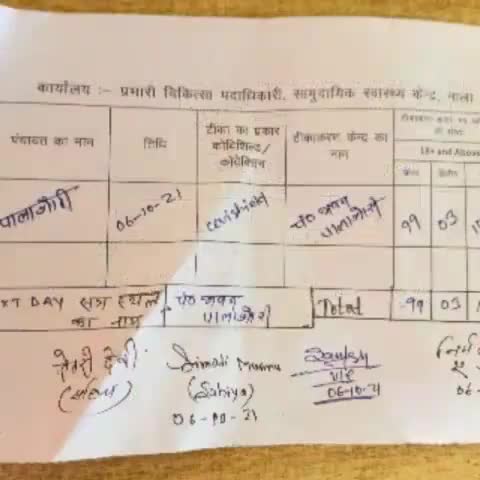 कार्यालय :- प्रभारी चिकित्सा पदाधिकारी, सामुदायिक स्वास्थ्य केन्द्र, नाला
पंचायत का नाम
तिथि
टीका का प्रकार
कोविशिल्ड/
कोवैक्सिन
टीकाकरण केन्द्र का
नाम
18+ and Above
पालाजोरी
06-10-21
covishield
पं० भवन
पालाजोरी
99
03
XT DAY सत्र स्थल
का नाम
पं० भवन
पालाजोरी
Total
99
03
देवी
(सहिया)
Murmu
(Sahiya)
06-10-21
06-10-21
06-